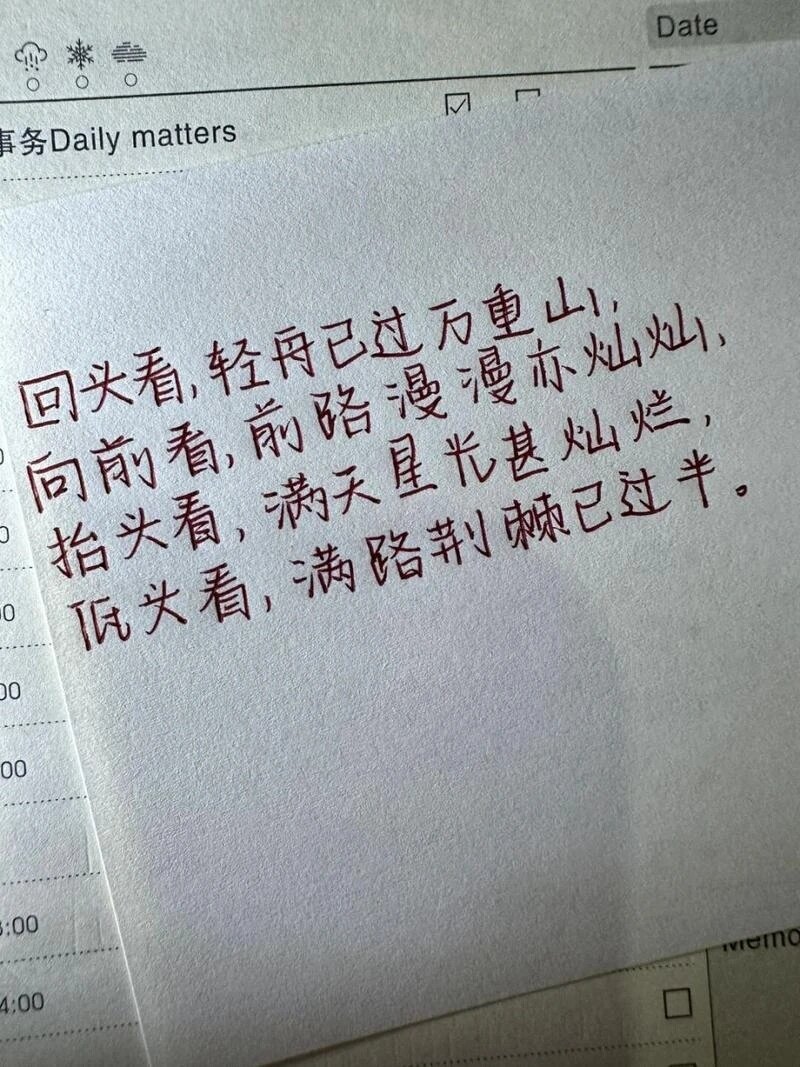 Date
事务Daily matters
回头看,轻舟已过万重山,
向前看,前路漫漫亦灿灿,
抬头看,满天星光甚灿烂,
低头看,满路荆棘已过半。
:00
4:00
Memo